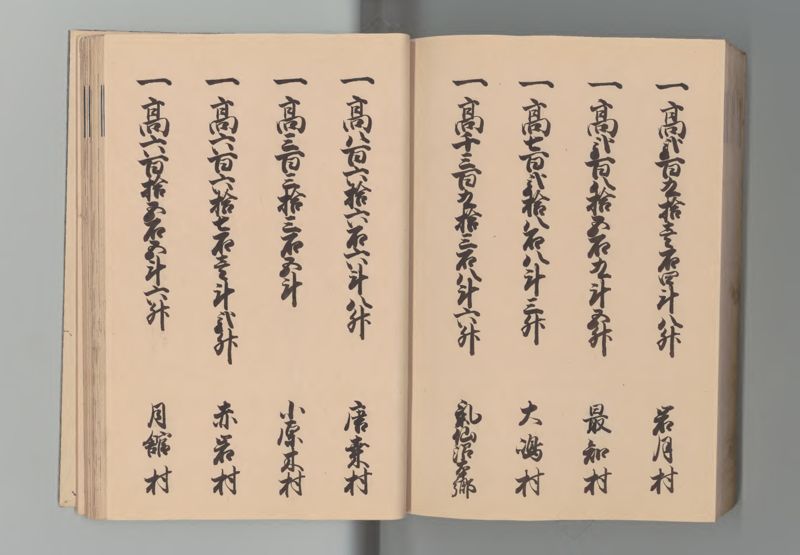 一高弐百九拾壱石四斗八升 岩月村
一高弐百八拾五石九斗五升 最知村
一高七百弐拾八石八斗三升 大嶋村
一高十三百九拾三石八斗六升
一高八百六拾六石六斗八升 唐桑村
一高三百三拾三石五斗 小原木村
一高六百六拾七石壱斗弐升 赤岩村
一高六百拾五石五斗六升 月館村